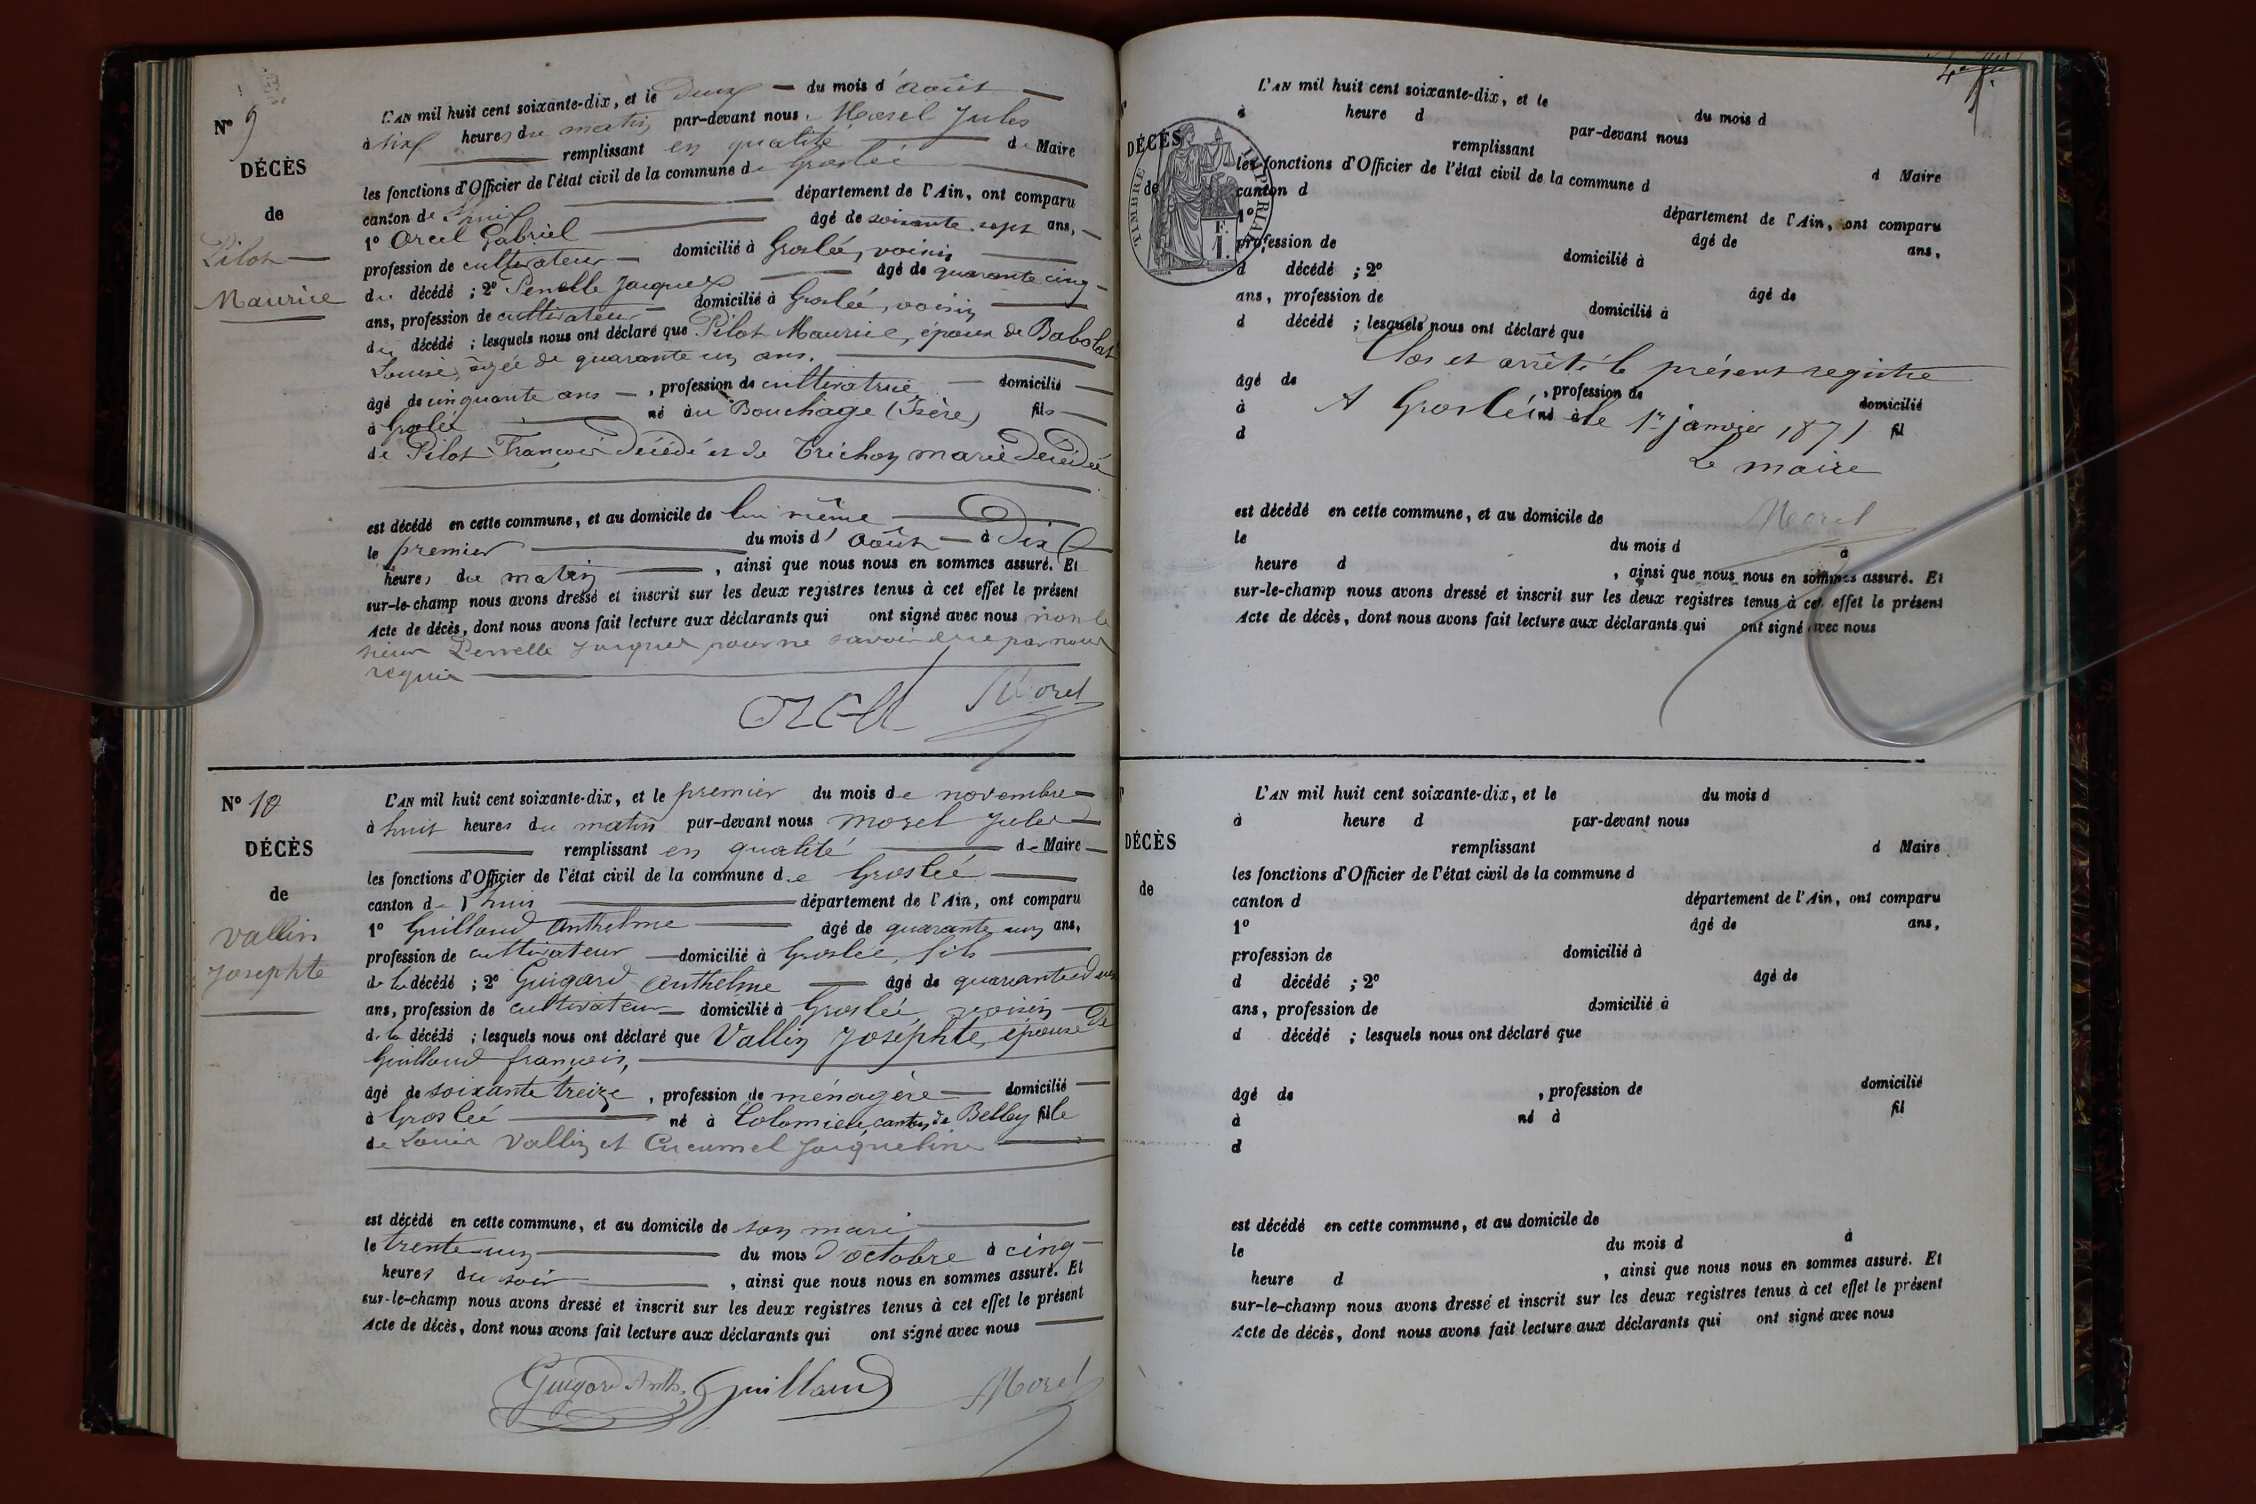 N° 9
DÉCÈS
de
Pilot
Maurice
L'AN mil huit cent soixante-dix, et le Deux du mois d'août
à six heures du matin par-devant nous Morel Jules
remplissant en qualité de Maire
les fonctions d'Officier de l'état civil de la commune de Groslée
canton de Lhuis département de l'Ain, ont comparu
1° Orcel Gabriel âgé de soixante sept ans,
profession de cultivateur domicilié à Groslée, voisin
du décédé ; 2° Perrelle Jacques âgé de quarante cinq
ans, profession de cultivateur domicilié à Groslée, voisin
du décédé ; lesquels nous ont déclaré que Pilot Maurice, époux de Babolat
Louise, âgée de quarante un ans.
âgé de cinquante ans, profession de cultivatrice domicilié
à Groslée né au Bouchage (Isère) fils
de Pilot François Décédé et de Trichon marie Décédée
est décédé en cette commune, et au domicile de lui même
le premier du mois d'août à Dix
heures du matin, ainsi que nous nous en sommes assuré. Et
sur-le-champ nous avons dressé et inscrit sur les deux registres tenus à cet effet le présent
Acte de décès, dont nous avons fait lecture aux déclarants qui ont signé avec nous non le
sieur Perrelle Jacques pour ne savoir de ce par nous
requis
Orcel Morel
N° 10
DÉCÈS
de
Vallin
Josephte
L'AN mil huit cent soixante-dix, et le premier du mois de novembre
à huit heures du matin par-devant nous Morel Jules
remplissant en qualité de Maire
les fonctions d'Officier de l'état civil de la commune de Groslée
canton de Lhuis département de l'Ain, ont comparu
1° Guilland Anthelme âgé de quarante un ans,
profession de cultivateur domicilié à Groslée, fils
de la décédé ; 2° Guigard Anthelme âgé de quarante deux
ans, profession de cultivateur domicilié à Groslée, voisin
de la décédé ; lesquels nous ont déclaré que Vallin Joséphte, épouse De
Guilland françois,
âgé de soixante treize, profession de ménagère domicilié
à Groslée né à Colomieu, canton de Belley fille
de Louis Vallin et Cucumel Jacqueline
est décédé en cette commune, et au domicile de son mari
le trente-un du mois d'octobre à cinq
heures du soir, ainsi que nous nous en sommes assuré. Et
sur-le-champ nous avons dressé et inscrit sur les deux registres tenus à cet effet le présent
Acte de décès, dont nous avons fait lecture aux déclarants qui ont signé avec nous
Guigard Anth. Guilland Morel
DÉCÈS
de
TIMBRE IMPÉRIAL
F.
1.
L'AN mil huit cent soixante-dix, et le du mois d
à heure d par-devant nous
remplissant d Maire
les fonctions d'Officier de l'état civil de la commune d
canton d département de l'Ain, ont comparu
1° âgé de ans,
profession de domicilié à
d décédé ; 2° âgé de
ans, profession de domicilié à
d décédé ; lesquels nous ont déclaré que
Clos et arrêté le présent registre
âgé de , profession de domicilié
à né à fil
A Groslée le 1er janvier 1871
d
Le maire
Morel
est décédé en cette commune, et au domicile de
le du mois d à
heure d , ainsi que nous nous en sommes assuré. Et
sur-le-champ nous avons dressé et inscrit sur les deux registres tenus à cet effet le présent
Acte de décès, dont nous avons fait lecture aux déclarants qui ont signé avec nous
DÉCÈS
de
L'AN mil huit cent soixante-dix, et le du mois d
à heure d par-devant nous
remplissant d Maire
les fonctions d'Officier de l'état civil de la commune d
canton d département de l'Ain, ont comparu
1° âgé de ans,
profession de domicilié à
d décédé ; 2° âgé de
ans, profession de domicilié à
d décédé ; lesquels nous ont déclaré que
âgé de , profession de domicilié
à né à fil
d
est décédé en cette commune, et au domicile de
le du mois d à
heure d , ainsi que nous nous en sommes assuré. Et
sur-le-champ nous avons dressé et inscrit sur les deux registres tenus à cet effet le présent
Acte de décès, dont nous avons fait lecture aux déclarants qui ont signé avec nous